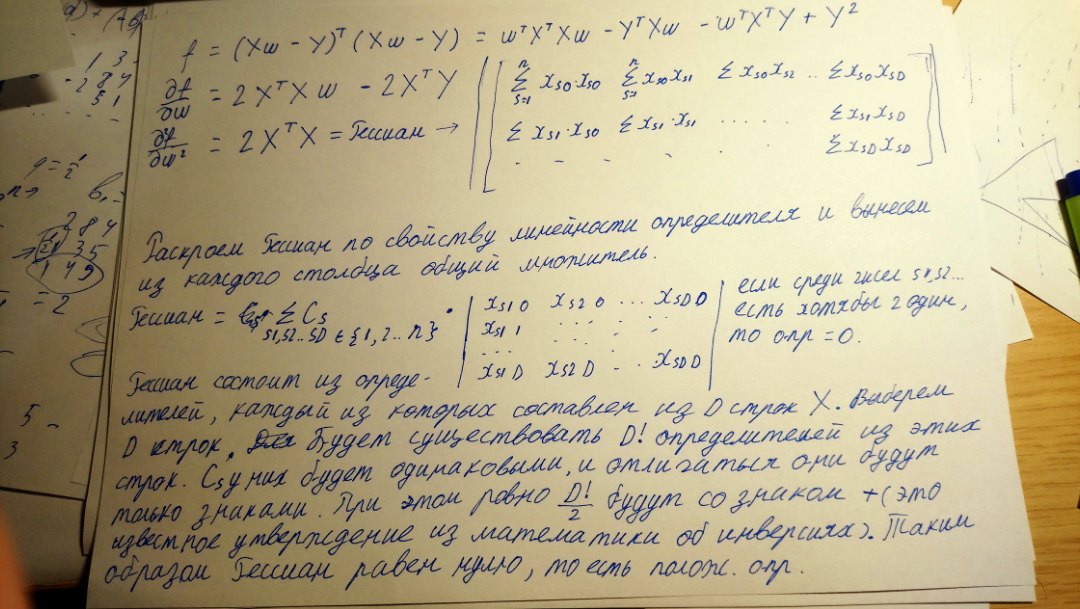 f = (Xw - Y)ᵀ (Xw - Y) = wᵀXᵀXw - YᵀXw - wᵀXᵀY + Y²
∂f/∂w = 2XᵀXw - 2XᵀY
∂²f/∂w² = 2XᵀX = Гессиан →
∑ₛ₌₁ⁿ xs0·xs0 ∑ₛ₌₁ⁿ xs0xs1 ∑xs0xs2 .. ∑xs0xsD
∑xs1·xs0 ∑xs1·xs1 ...... ∑xs1xsD
- - - - . . ∑xsDxsD
Раскроем Гессиан по свойству линейности определителя и вынесем
из каждого столбца общий множитель.
Гессиан = ∑Cs ·
s1,s2..sD ∈ {1,2..n}
xs10 xs20 ... xsD0
xs11 . . . . . .
... . . . . .
xs1D xs2D - .. xsDD
если среди чисел s1,s2...
есть хотябы 2 один,
то опр = 0.
Гессиан состоит из опреде-
лителей, каждый из которых составлен из D строк X. Выберем
D строк. Будет существовать D! определителей из этих
строк. Cs у них будет одинаковыми, и отличаться они будут
только знаками. При этом ровно D!/2 будут со знаком + (это
известное утверждение из математики об инверсиях). Таким
образом Гессиан равен нулю, то есть полож. опр.
1 3
- 2 8 4
5 1
q = 1/2
2 8 4
→ 21 3 5
1 4 9
= 2
5 -
3